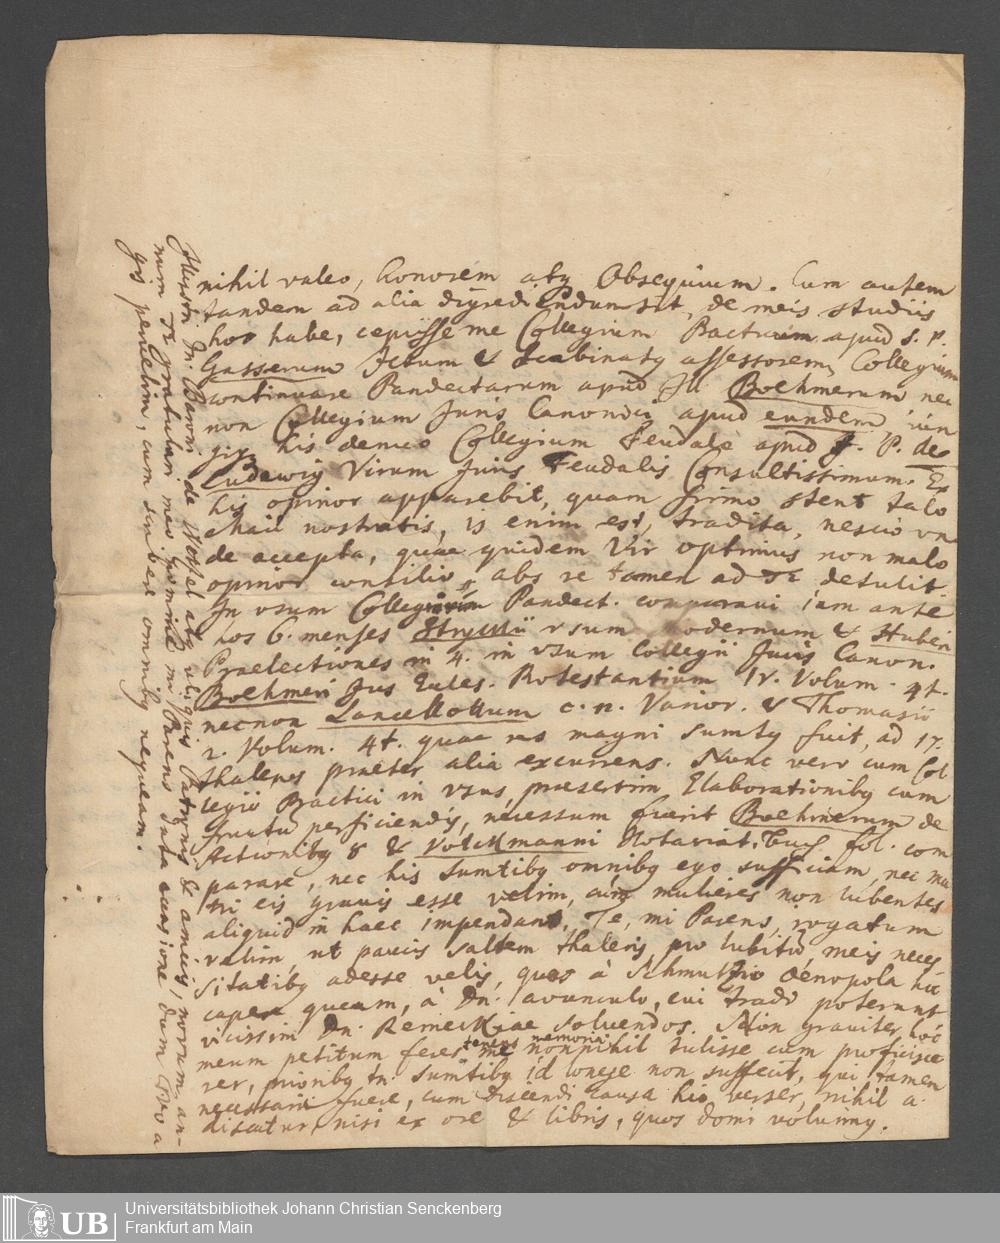 nihil valeo, honorem atq Obsequium. Cum autem
tandem ad alia digrediendum sit, de meis studiis
hoc habe, cepisse me Collegium Practicum apud S. P.
Gasserum Ictum & Scabinatq assessorem, Collegium
continuare Pandectarum apud Ill Boehmerum, nec
non Collegium Juris Canonici apud eundem, iun
gis his denuo Collegium Feudale apud J. P. de
Ludewig Virum Juris Feudalis Consultissimum. Ex
his opinor apparebit, quam firmo stent talo
nostratis, is enim est, tradita, nescio vn
de accepta, quae quidem Vir optimus non malo
opinor consilio, abs re tamen ad Te detulit.
In vsum Collegiorum Pandect. comparavi iam ante
hos 6. menses Stryckii vsum modernum & Huberi
Praelectiones in 4. in vsum Collegii Juris Canon.
Boehmeri Jus Eccles. Protestantium IV. Volum. 4t.
necnon Lancellottum c. n. Varior. & Thomasii
2. Volum. 4t. quae res magni sumtq fuit, ad 17.
thaleros praeter alia excurrens. Nunc vero cum Col
legio Practici in vsus, praesertim Elaborationibq cum
fructu perficiendis, necessum fuerit Boehmerum de
Actionibq 8 & Volckmanni Notariat. Buch fol. com
parare, nec his sumtibq omnibq ego sufficiam, nec ma
tri eis gravis esse velim, cum mulieres non lubentes
aliquid in haec impendant, Te, mi Parens, rogatum
velim, ut paucis saltem thaleris pro lubitu, meis neces
sitatibq adesse velis, quos à Schmutzio Oenopola hic
capere queam, à Dn. avunculo, cui tradi poterunt
vicissim Dn. Reineckiae solvendos. Non graviter hoc
meum petitum feres tenens memoria me nonnihil tulisse cum proficisce
rer, prioribq tn. sumtibq id longe non suffecit, qui tamen
necessarii fuere, cum discendi causa hic verser, nihil a.
discatur, nisi ex ore & libris, quos domi volvimq.
Illustri Dn. Baroni de Wessel atq reliquis Patronis & amicis, novum an-
num Te gratulari meo nomine mi Parens iusta censiora dum oro a
gis penetrim, cum scribere omnibq nequeam.
Universitätsbibliothek Johann Christian Senckenberg
Frankfurt am Main
UB